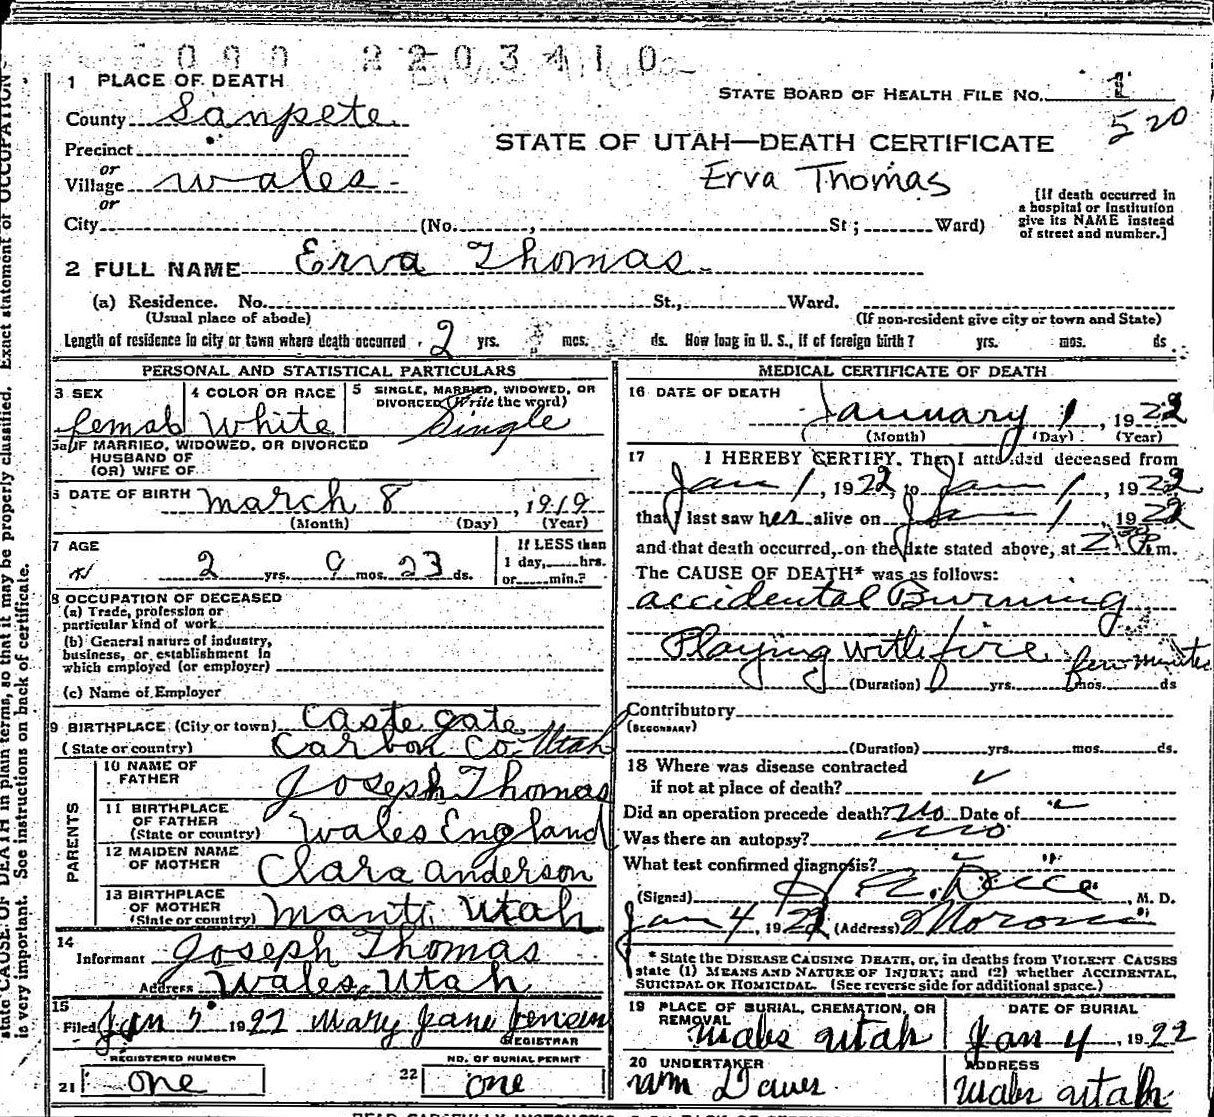 000 2203410
1 PLACE OF DEATH
STATE BOARD OF HEALTH FILE NO. 1
County Sanpete
520
STATE OF UTAH—DEATH CERTIFICATE
Precinct
or
Village Wales
Erva Thomas
or
[If death occurred in a hospital or institution give its NAME instead of street and number.]
City (No. , St; Ward)
2 FULL NAME Erva Thomas
(a) Residence. No. St., Ward.
(Usual place of abode) (If non-resident give city or town and State)
Length of residence in city or town where death occurred 2 yrs. mos. ds. How long in U. S., if of foreign birth? yrs. mos. ds.
PERSONAL AND STATISTICAL PARTICULARS
3 SEX 4 COLOR OR RACE 5 SINGLE, MARRIED, WIDOWED, OR DIVORCED (Write the word)
female White Single
5a IF MARRIED, WIDOWED, OR DIVORCED
HUSBAND OF
(OR) WIFE OF
6 DATE OF BIRTH March 8, 1919
(Month) (Day) (Year)
7 AGE
2 yrs. 9 mos. 23 ds.
If LESS than
1 day, hrs.
or min.?
8 OCCUPATION OF DECEASED
(a) Trade, profession or
particular kind of work
(b) General nature of industry,
business, or establishment in
which employed (or employer)
(c) Name of Employer
9 BIRTHPLACE (City or town) Castegate
(State or country) Carbon Co. Utah
PARENTS
10 NAME OF FATHER Joseph Thomas
11 BIRTHPLACE OF FATHER (State or country) Wales England
12 MAIDEN NAME OF MOTHER Clara Anderson
13 BIRTHPLACE OF MOTHER (State or country) Manti Utah
14
Informant Joseph Thomas
Address Wales, Utah
15
Filed Jan 5 1922 Mary Jane Jensen
REGISTRAR
REGISTERED NUMBER NO. OF BURIAL PERMIT
21 one 22 one
MEDICAL CERTIFICATE OF DEATH
16 DATE OF DEATH
January 1, 1922
(Month) (Day) (Year)
17 I HEREBY CERTIFY, That I attended deceased from
Jan 1, 1922, to Jan 1, 1922
that I last saw her alive on Jan 1 1922
and that death occurred, on the date stated above, at 2:30 P.m.
The CAUSE OF DEATH* was as follows:
accidental Burning
Playing with fire few minutes
(Duration) yrs. mos. ds
Contributory
(SECONDARY)
(Duration) yrs. mos. ds.
18 Where was disease contracted
if not at place of death?
Did an operation precede death? No Date of
Was there an autopsy? no
What test confirmed diagnosis?
(Signed) , M. D.
Jan 4, 1922 (Address) Moroni
* State the DISEASE CAUSING DEATH, or, in deaths from VIOLENT CAUSES
state (1) MEANS AND NATURE OF INJURY; and (2) whether ACCIDENTAL,
SUICIDAL OR HOMICIDAL. (See reverse side for additional space.)
19 PLACE OF BURIAL, CREMATION, OR REMOVAL DATE OF BURIAL
Wales Utah Jan 4, 1922
20 UNDERTAKER ADDRESS
Wm Wales Utah
state CAUSE OF DEATH in plain terms, so that it may be properly classified. Exact statement of OCCUPATION
is very important. See instructions on back of certificate.